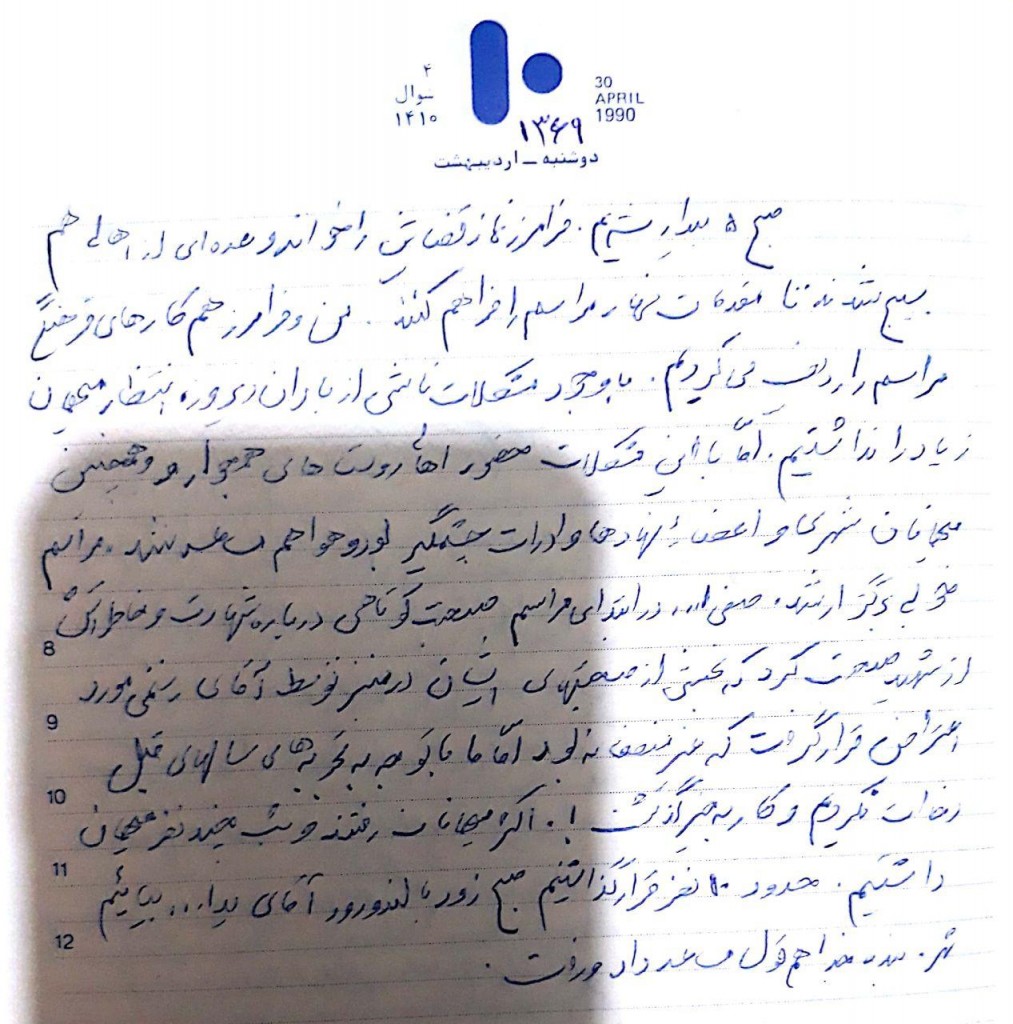 ۴
شوال
۱۴۱۰
۱۰
30
APRIL
1990
۱۳۶۹
دوشنبه - اردیبهشت
صبح ۵ بیدار شدیم. فرامرز نماز قضایش را خواند و عده‌ای از اهالی هم
بسیج شدند تا مقدمات نهار مراسم را فراهم کنند. من و فرامرز هم کارهای فرهنگی
مراسم را ردیف می‌کردیم. با وجود مشکلات ناشی از باران دیروز، انتظار میهمان
زیاد را نداشتیم. امّا با این مشکلات حضور اهالی روستاهای همجوار و همچنین
میهمانان شهری و اعضاء نهادها و ادارات چشمگیر بود و هوا هم مساعد شد. مراسم
خوبی برگزار شد. صفی‌ا... در ابتدای مراسم صحبت کوتاهی درباره شهادت و خاطراتش
8
از شهید صحبت کرد که بخشی از صحبتهای ایشان در منبر توسط آقای رستمی مورد
9
اعتراض قرار گرفت که غیر منصفانه بود امّا ما با توجه به تجربه‌های سالهای قبل
10
دخالت نکردیم و کار به خیر گذشت !. اکثر میهمانان رفتند و شب چند نفر میهمان
11
داشتیم. حدود ۱۰ نفر قرار گذاشتیم صبح زود با لندرور آقای یدا... بیائیم
12
هم قول مساعد داد و رفت.